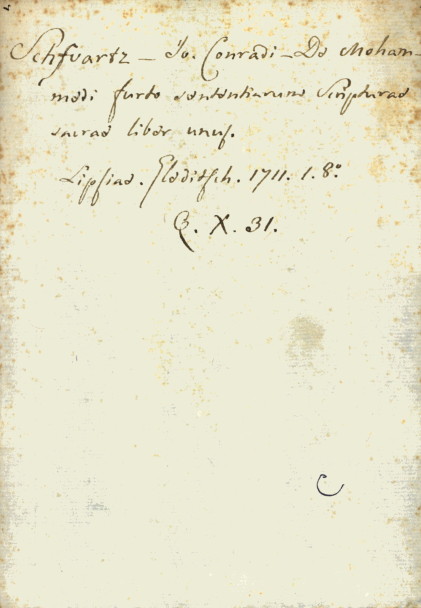 Schfvartz - Io. Conradi - De Moham-
medi furto sententiarum Scripturae
sacrae liber unus.
Lipsiae. Gleditsch. 1711. 1. 8.º
Q. X. 31.
C